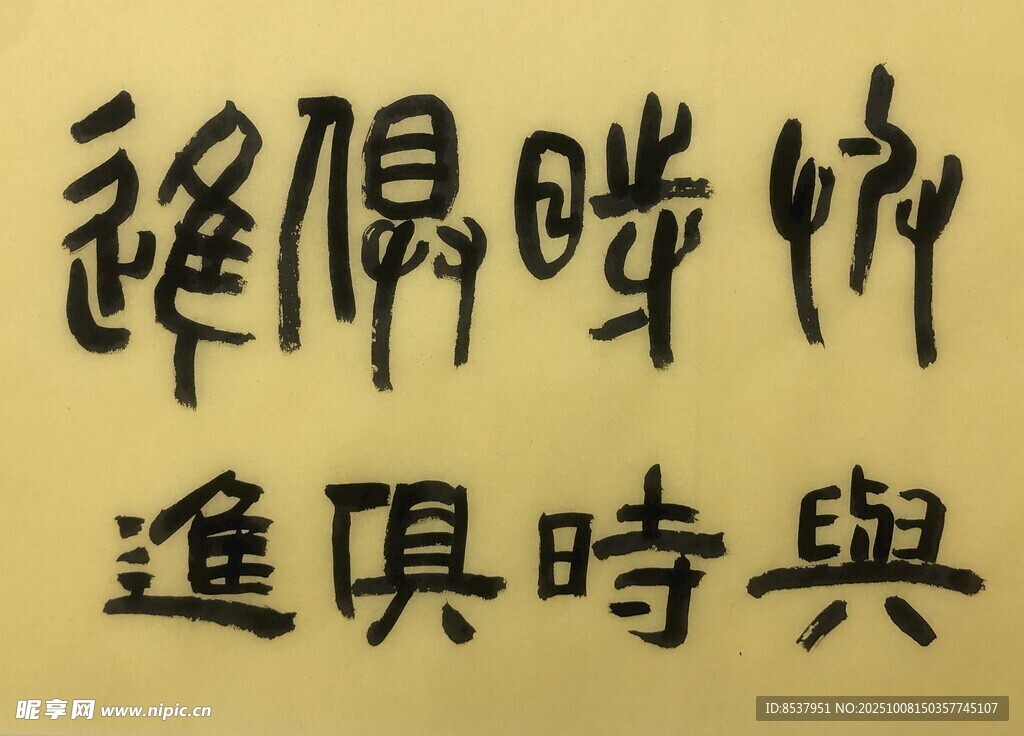 與時俱進
與時俱進
昵享网 www.nipic.cn
ID:8537951 NO:20251008150357745107